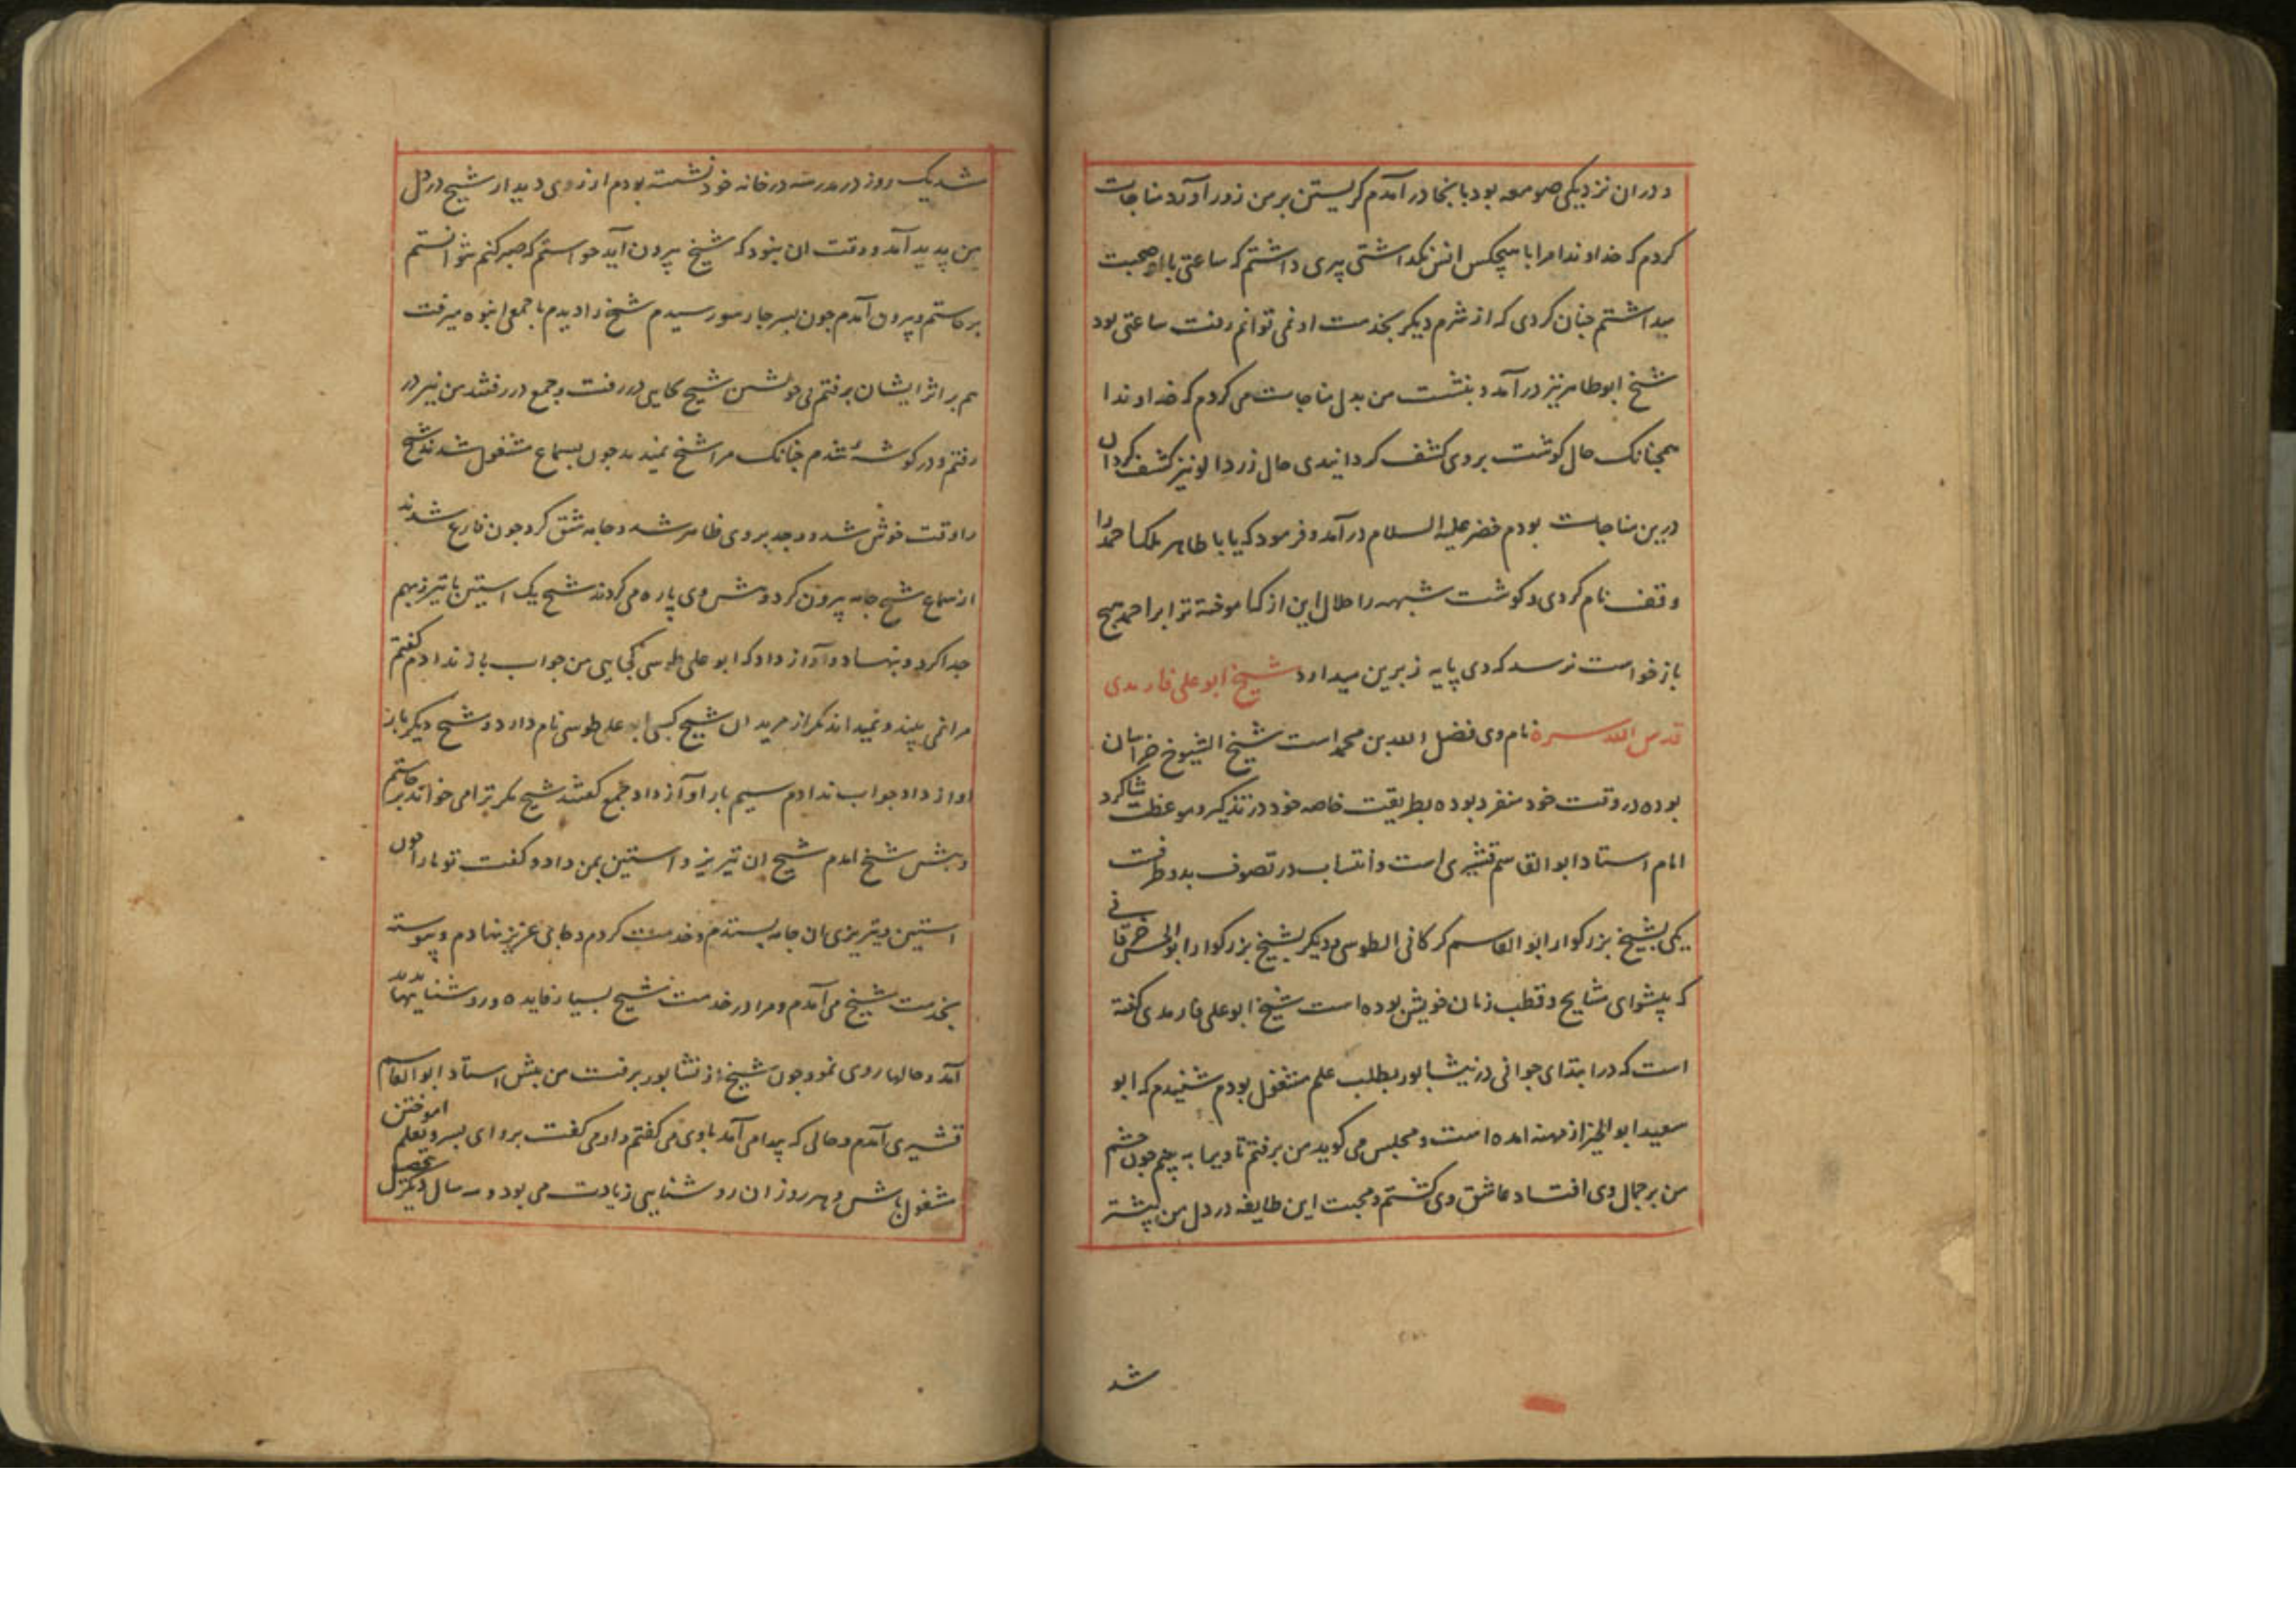 و در ان نزدیکی صومعه بود بانجا در آمدم کریستن بر من زور آورد مناجات
کردم که خداوندا مرا با هیچکس انس نکداشتی پیری داشتم که ساعتی با او صحبت
میداشتم چنان کردی که از شرم دیکر بخدمت او نمی توانم رفت ساعتی بود
شیخ ابو طاهر نیز در آمد و بنشست من بدل مناجات می کردم که خداوندا
همچنانک حال کوشت بر وی کشف کردانیدی حال زردالو نیز کشف کردان
درین مناجات بودم خضر علیه السلام در آمد و فرمود که یا با طاهر ملک احمد را
وقف نام کردی و کوشت شبهه را حلال این از کجا اموخته ترا بر احمد هیچ
باز خواست نرسد که وی پایه زبرین میدارد شیخ ابو علی فارمدی
قدس الله سره نام وی فضل الله بن محمد است شیخ الشیوخ خراسان
بوده در وقت خود منفرد بوده بطریقت خاصه خود در تذکیر و موعظت شاکرد
امام استاد ابو القاسم قشیری است و انتساب در تصوف بدو طرفست
یکی بشیخ بزرکوار ابو القاسم کرکانی الطوسی و دیکر بشیخ بزرکوار ابو الحسن خرقانی
که پیشوای مشایخ و قطب زمان خویش بوده است شیخ ابو علی فارمدی کفته
است که در ابتدای جوانی در نیشابور بطلب علم مشغول بودم شنیدم که ابو
سعید ابو الخیر از مهنه امده است و مجلس می کوید من برفتم تا ویرا به بینم چون چشم
من بر جمال وی افتاد عاشق وی کشتم و محبت این طایفه در دل من بیشتر
شد
شد یک روز در مدرسه در خانه خود نشسته بودم ارزوی دیدار شیخ در دل
من پدید آمد و وقت ان نبود که شیخ بیرون آید خواستم که صبر کنم نتوانستم
برخاستم و بیرون آمدم چون بسر چار سو رسیدم شیخ را دیدم با جمعی انبوه میرفت
هم بر اثر ایشان برفتم بی خویشتن شیخ بجایی در رفت و جمع در رفتند من نیز در
رفتم و در کوشه شدم چنانک مرا شیخ نمیدید چون بسماع مشغول شدند شیخ
را وقت خوش شد و وجد بر وی ظاهر شد و جامه شق کرد چون فارغ شدند
از سماع شیخ جامه بیرون کرد و پیش وی پاره می کردند شیخ یک استین با تیریز بهم
جدا کرد و بنهاد و آواز داد که ابو علی طوسی کجایی من جواب باز ندادم کفتم
مرا نمی بیند و نمیداند مکر از مریدان شیخ کسی ابو علی طوسی نام دارد و شیخ دیکر بار
اواز داد جواب ندادم سیم بار آواز داد جمع کفتند شیخ مکر ترا می خواند برخاستم
و پیش شیخ امدم شیخ ان تیریز و استین بمن داد و کفت تو ما را چون
استین و تیریزی ان جامه بستدم و خدمت کردم و بجایی عزیز نهادم و پیوسته
بخدمت شیخ می آمدم و مرا در خدمت شیخ بسیار فایده و روشناییها پدید
آمد و حالها روی نمود چون شیخ از نشابور برفت من پیش استاد ابو القاسم
قشیری آمدم و حالی که پیدا می آمد با وی می کفتم و او می کفت برو ای پسر و بعلم اموختن
مشغول باش و هر روز ان روشنایی زیادت می بود و سه سال دیکر بتحصیل